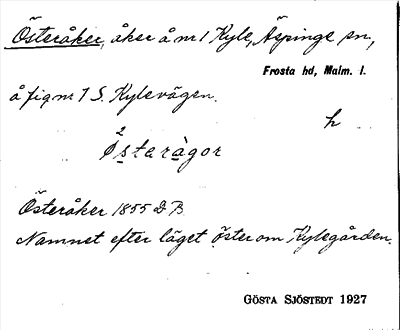 Österåker, åker å nr 1 Kyle, Äspinge sn,
Frosta hd, Malm. l.
å fig nr 7 S. Kylevägen.
h
2
Ǿstaràgor
Österåker 1855 D B.
Namnet efter läget öster om Kylegården.
GÖSTA SJÖSTEDT 1927